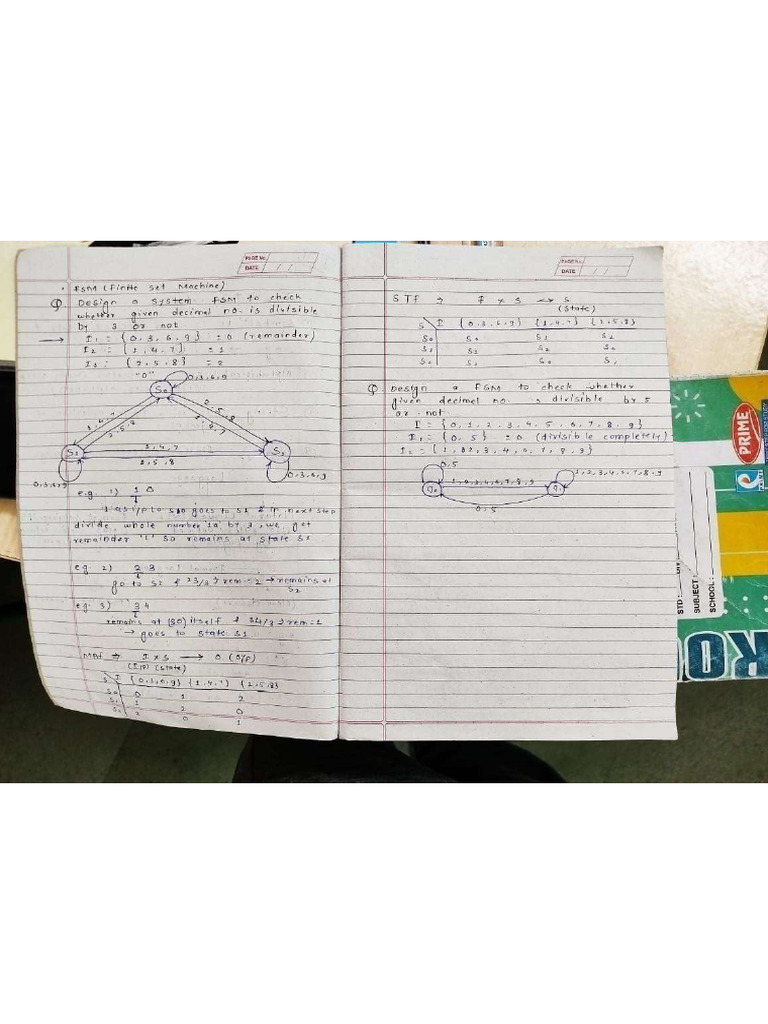 PAGE No.
DATE / /
• FSM (Finite Set Machine)
Q Design a system FSM to check
whether given decimal no. is divisible
by 3 or not
→ I₁ = {0, 3, 6, 9} = 0 (remainder)
I₂ = {1, 4, 7} = 1
I₃ = {2, 5, 8} = 2
"0" 0,3,6,9
S₀
1,4,7
2,5,8
2,5,8
1,4,7
S₁ 1,4,7 S₂
2,5,8
0,3,6,9 0,3,6,9
e.g. 1) 1 0
1 as i/p to S0 goes to S1 & in next step
divide, whole number 10 by 3, we get
remainder '1' so remains at state S1
eg 2) 2 3
go to S2 & 23/3 → rem = 2 → remains at
S2
eg 3) 3 4
remains at (S0) itself & 34/3 → rem = 1
→ goes to state S1
MAF ⇒ I × S → O (O/P)
(I/P) (State)
S I {0,3,6,9} {1,4,7} {2,5,8}
S₀ 0 1 2
S₁ 1 2 0
2 0 1
PAGE No.
DATE / /
STF ⇒ I × S → S
(State)
S I {0,3,6,9} {1,4,7} {2,5,8}
S₀ S₀ S₁ S₂
S₁ S₁ S₂ S₀
S₂ S₀ S₁
Q Design a FSM to check whether
given decimal no. is divisible by 5
or not.
I = {0, 1, 2, 3, 4, 5, 6, 7, 8, 9}
I₁ = {0, 5} = 0 (divisible completely)
0,5 1,2,3,4,6,7,8,9
1,2,3,4,6,7,8,9
q₀
0,5
PRIME
STD :
DIV
SUBJECT :
SCHOOL :